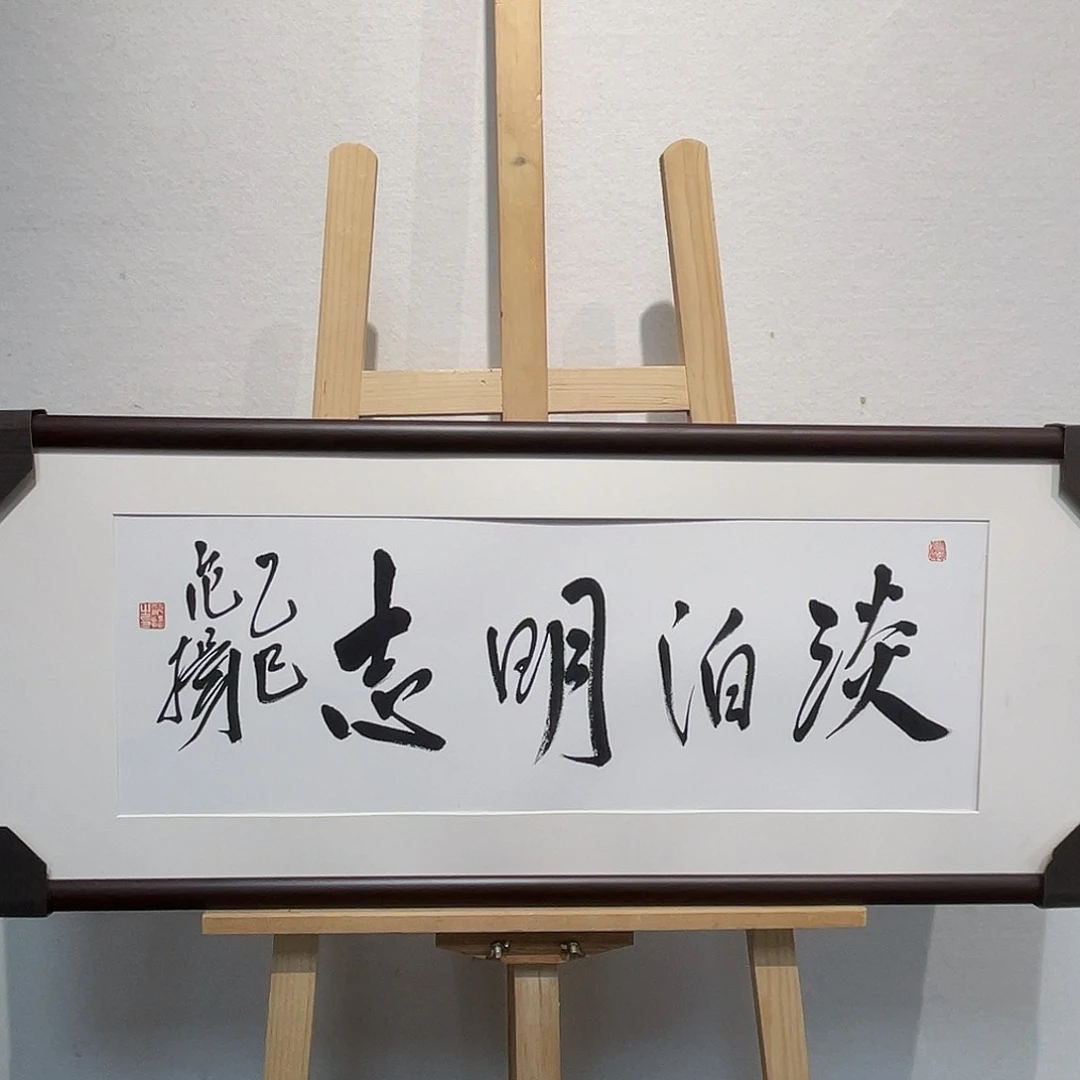 淡泊明志
乙巳